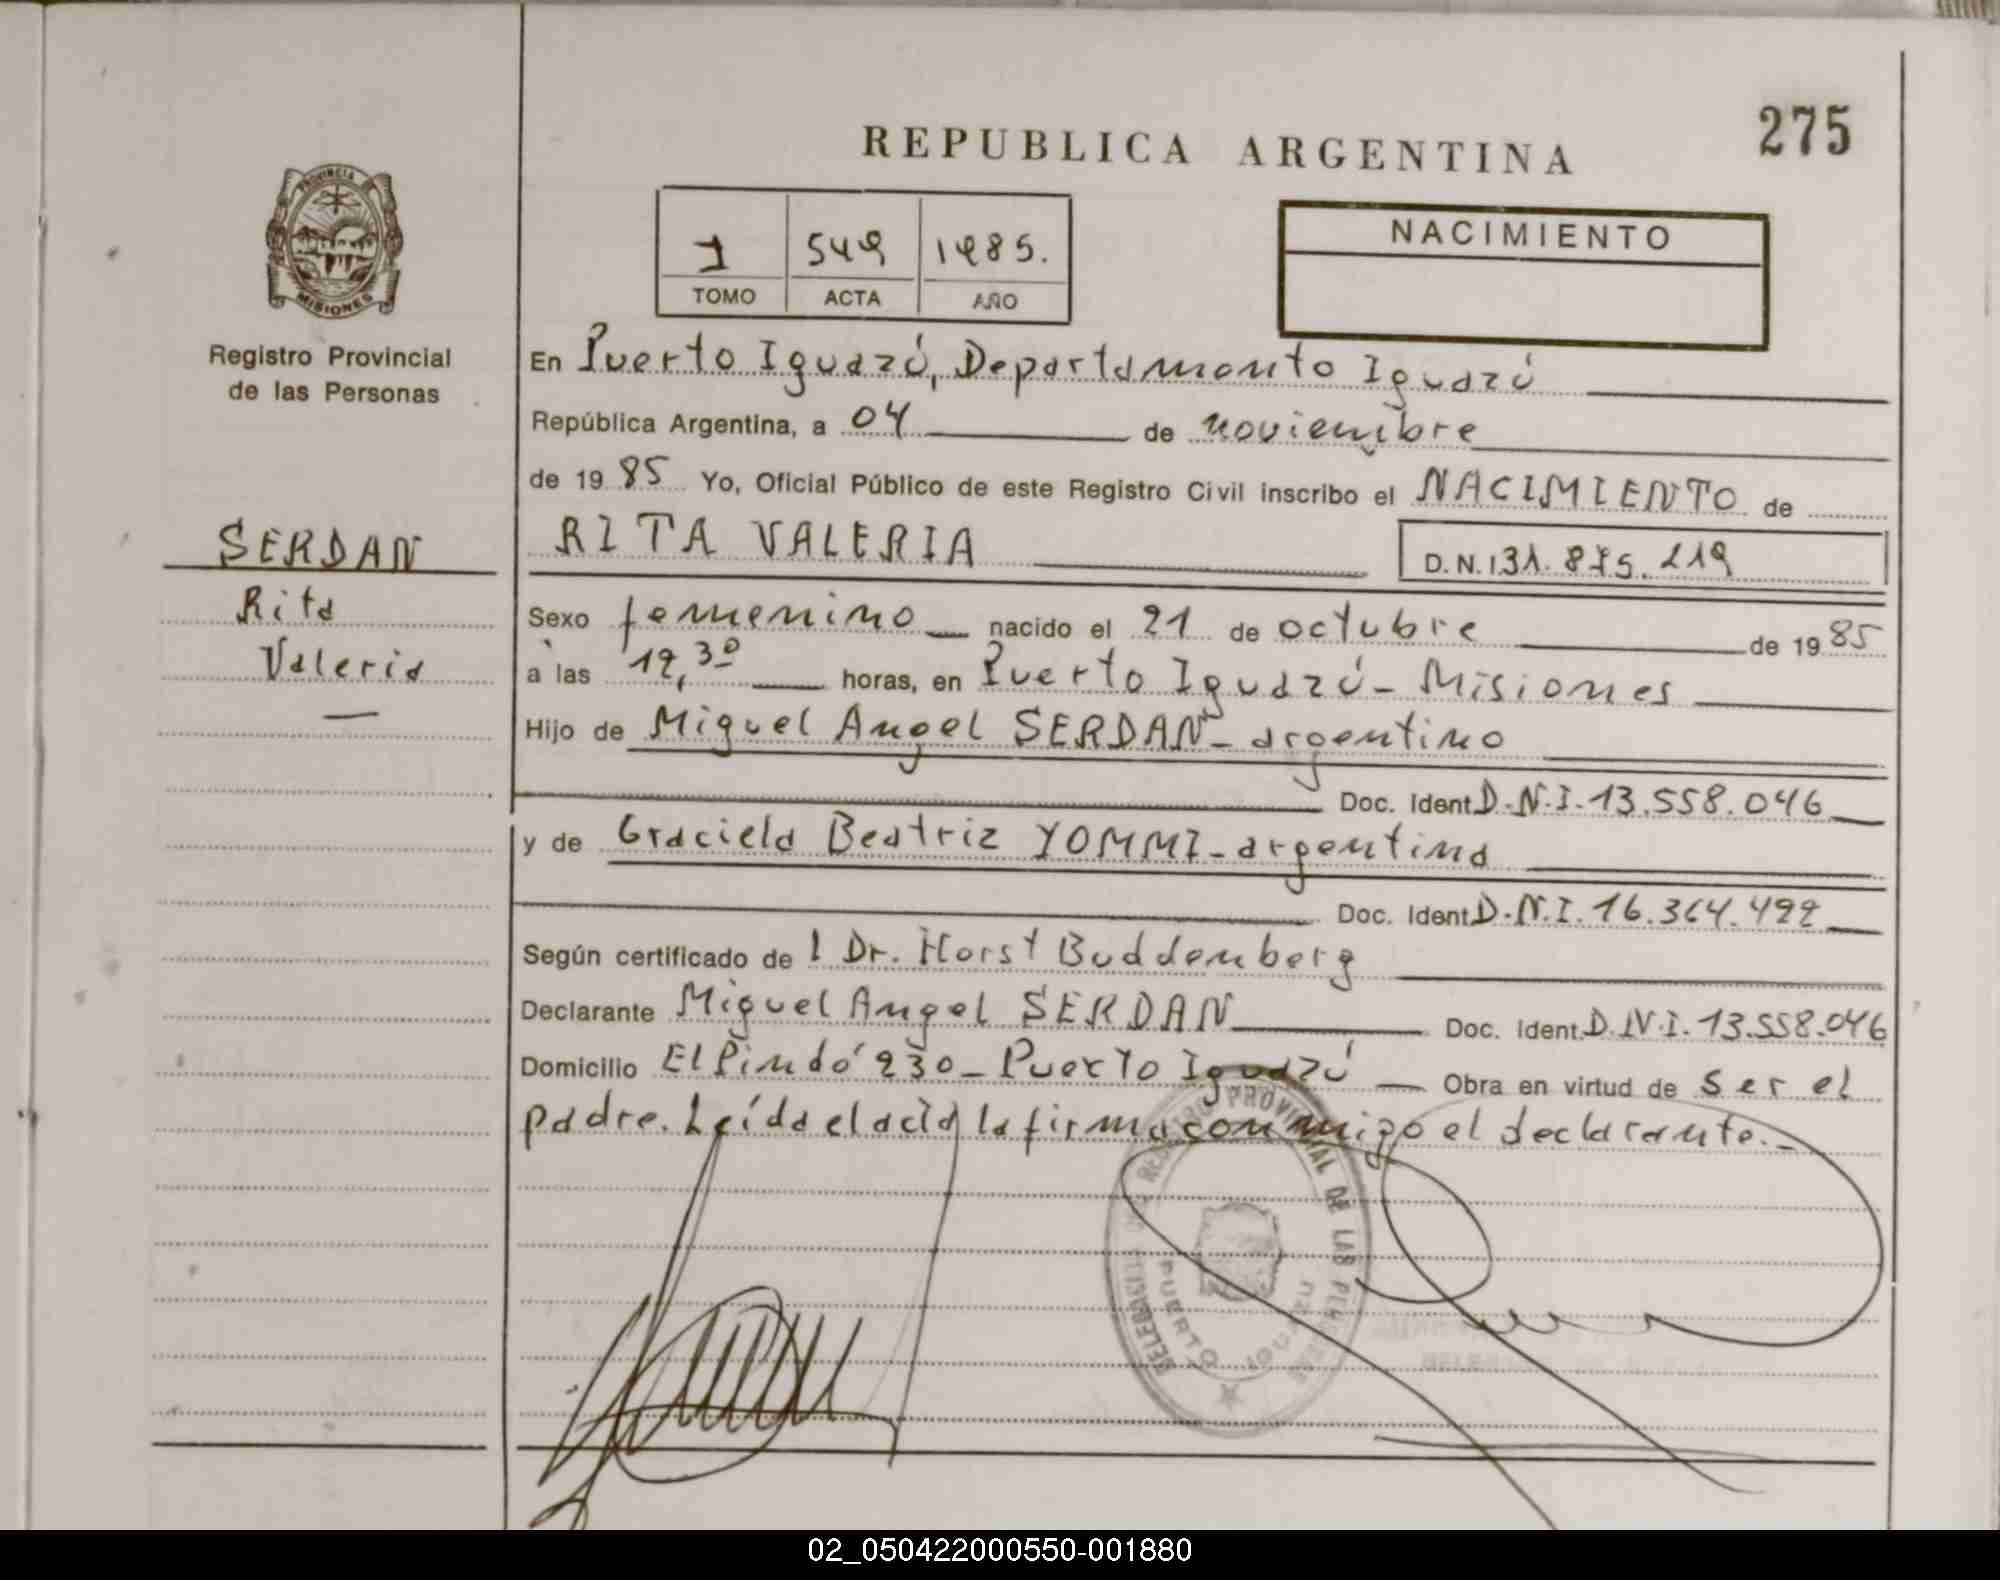 275
REPUBLICA ARGENTINA
PROVINCIA
MISIONES
Registro Provincial
de las Personas
1 549 1985.
TOMO ACTA AÑO
NACIMIENTO
En Puerto Iguazú, Departamento Iguazú
República Argentina, a 04 de noviembre
de 19 85 Yo, Oficial Público de este Registro Civil inscribo el NACIMIENTO de
SERDAN
Rita
Valeria
RITA VALERIA
D.N.I 31.875.219
Sexo femenino nacido el 21 de octubre de 19 85
a las 12,30 horas, en Puerto Iguazú - Misiones
Hijo de Miguel Angel SERDAN - argentino
Doc. Ident. D.N.I. 13.558.046
y de Graciela Beatriz YOMMI - argentina
Doc. Ident. D.N.I. 16.364.492
Según certificado de l Dr. Horst Buddemberg
Declarante Miguel Angel SERDAN Doc. Ident. D.N.I. 13.558.046
Domicilio El Pindó 230 - Puerto Iguazú Obra en virtud de ser el
padre. Leída el acta la firma conmigo el declarante.-
REGISTRO PROVINCIAL DE LAS PERSONAS
PUERTO IGUAZU
02_050422000550-001880